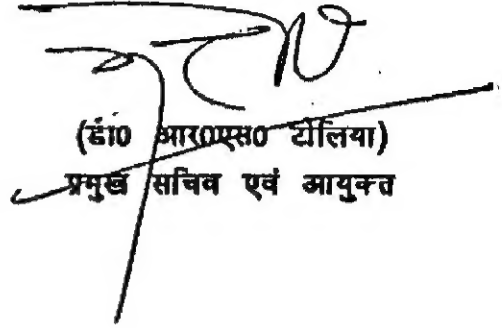 (डा0 आर0एस0 टोलिया)
प्रमुख सचिव एवं आयुक्त